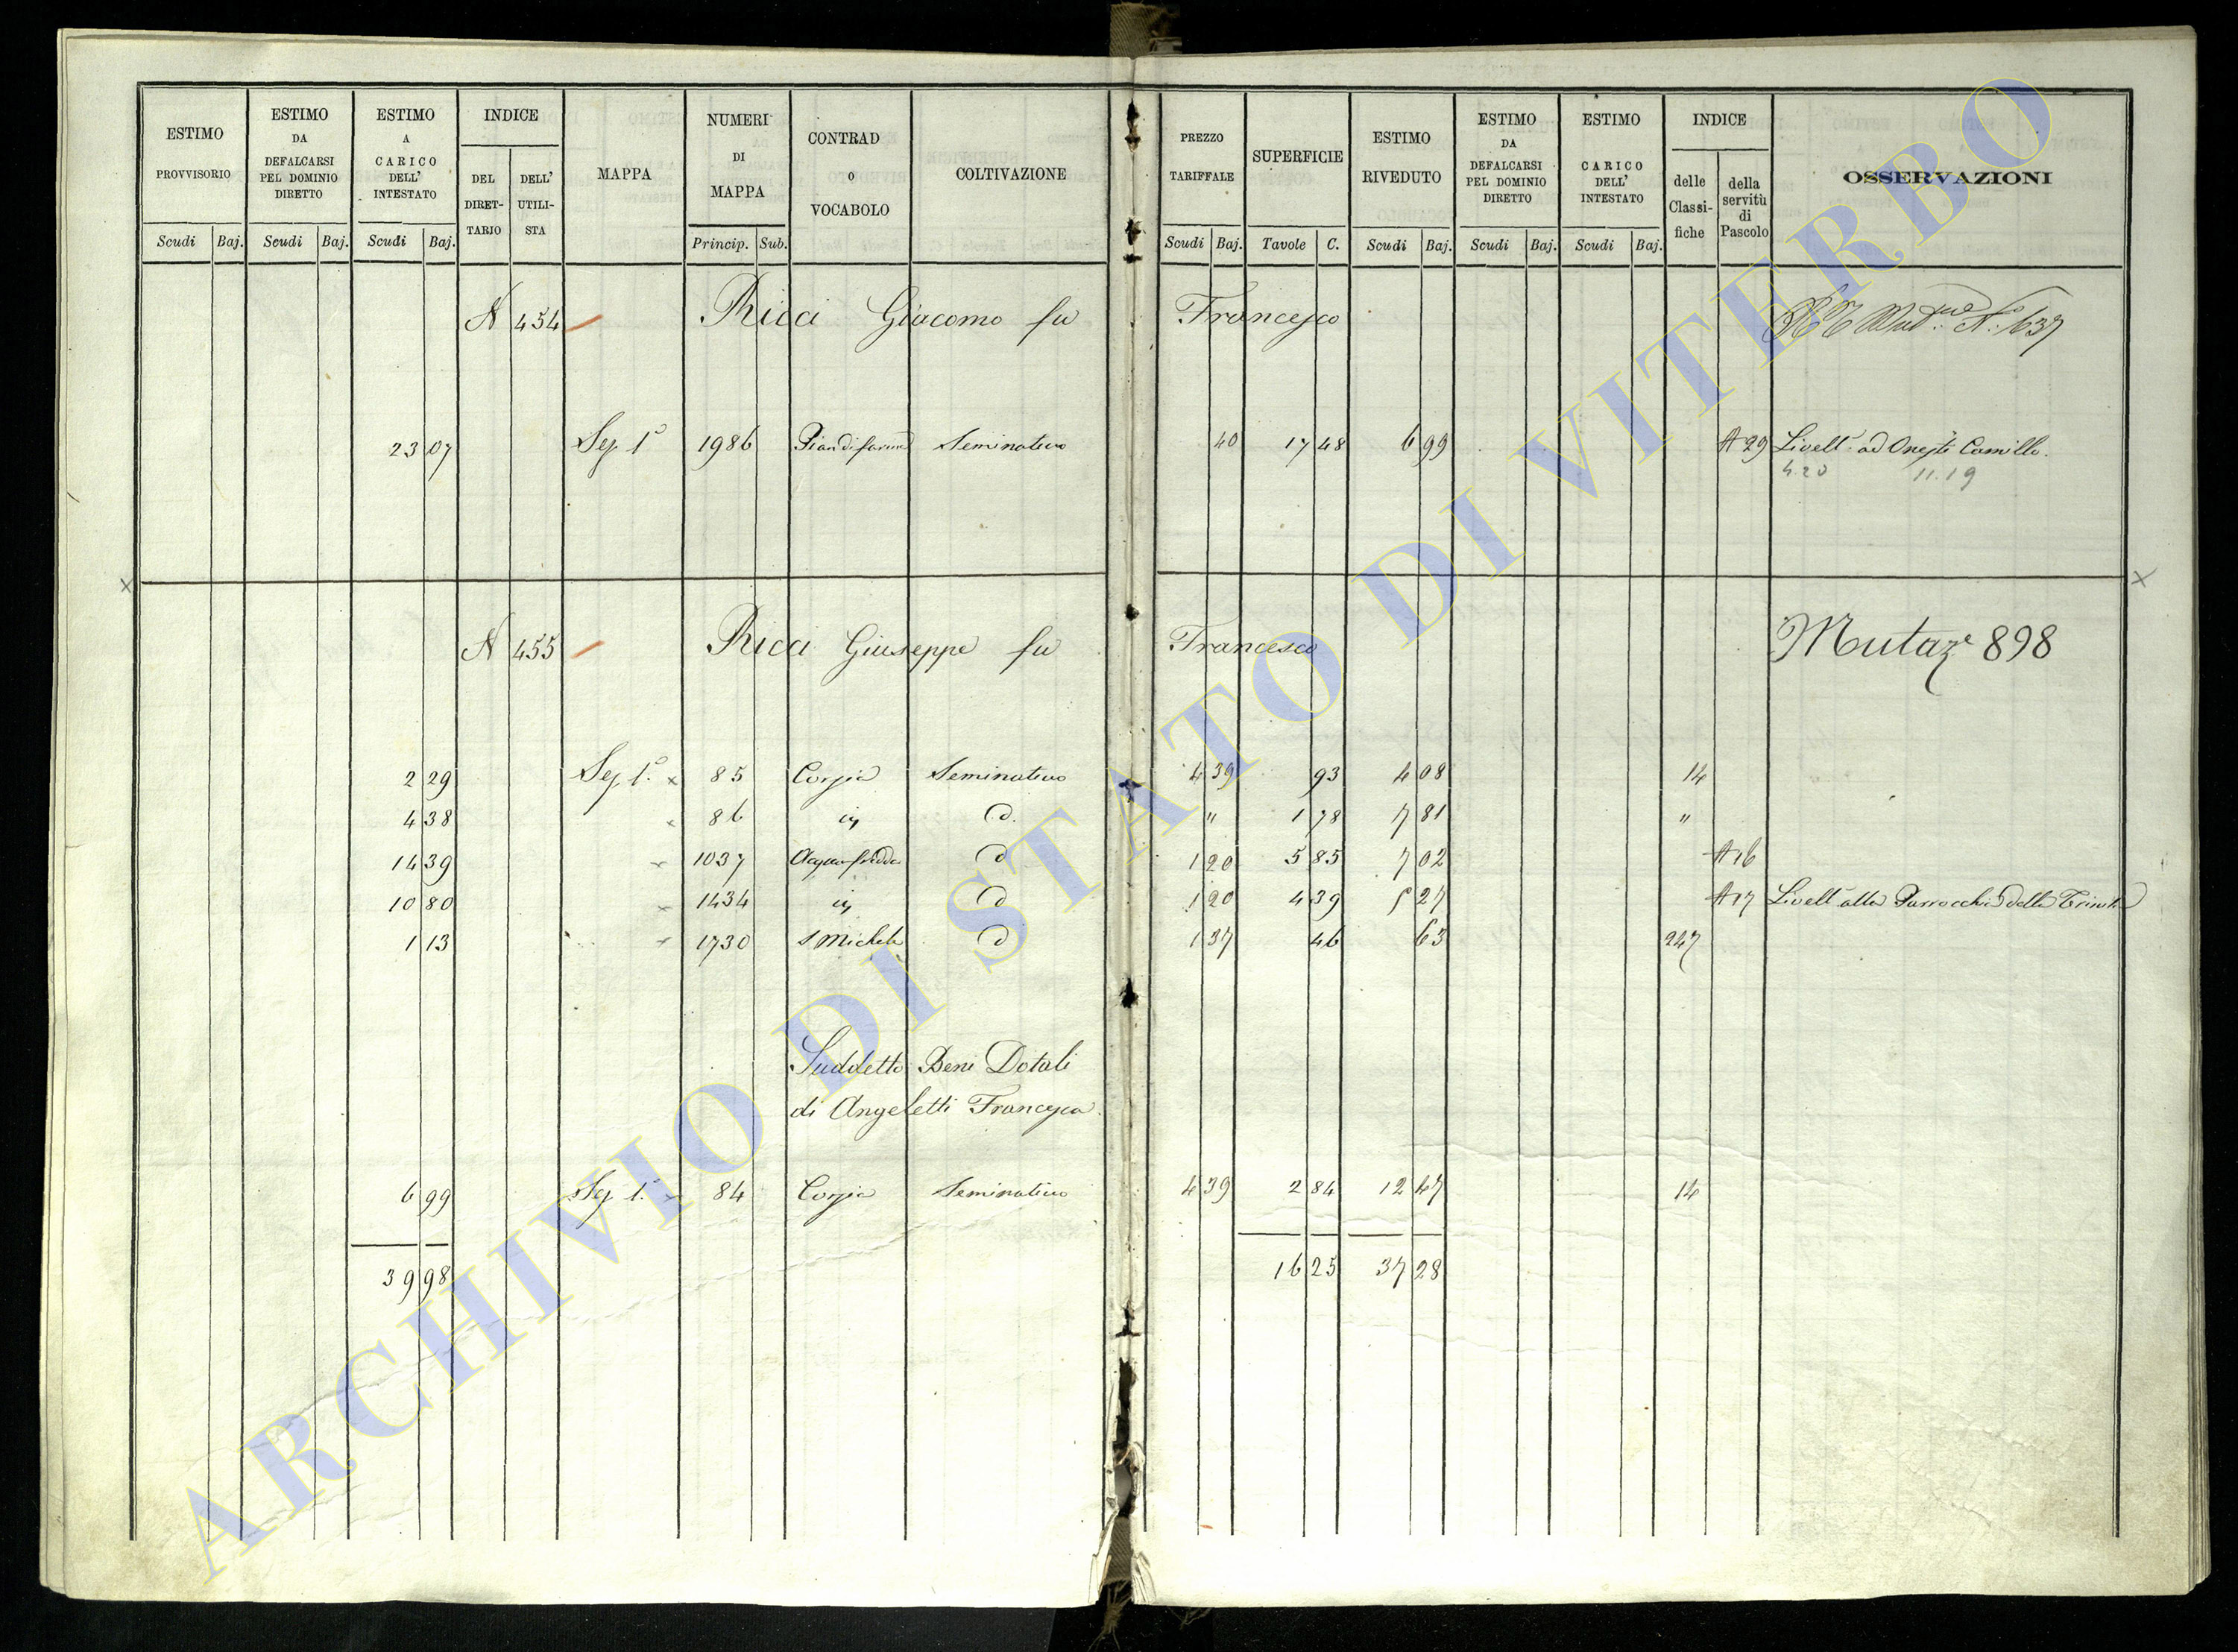 ESTIMO PROVVISORIO Scudi Baj.
ESTIMO DA DEFALCARSI PEL DOMINIO DIRETTO Scudi Baj.
ESTIMO A CARICO DELL' INTESTATO Scudi Baj.
INDICE DEL DIRETTARIO DELL' UTILISTA
MAPPA
NUMERI DI MAPPA Princip. Sub.
CONTRAD O VOCABOLO
COLTIVAZIONE
PREZZO TARIFFALE Scudi Baj.
SUPERFICIE Tavole C.
ESTIMO RIVEDUTO Scudi Baj.
ESTIMO DA DEFALCARSI PEL DOMINIO DIRETTO Scudi Baj.
ESTIMO CARICO DELL' INTESTATO Scudi Baj.
INDICE delle Classifiche della servitù di Pascolo
OSSERVAZIONI
N 454 Ricci Giacomo fu Francesco N. 637
23 07 Sez 1ª 1986 Seminativo 40 17 48 6 99 A 29 Livell. ad Onesti Camillo.
4.20 11.19
N 455 Ricci Giuseppe fu Francesco Mutaze 898
2 29 Sez 1ª × 85 Seminativo 4 39 93 4 08 14
4 38 × 86 in d. " 1 78 7 81 "
14 39 × 1037 Acqua fredda d 1 20 5 85 7 02 A 16
10 80 × 1434 in d 1 20 4 39 5 27 A 17 Livell alla Parrocchia della Trinità
1 13 × 1730 S Michele d 1 37 46 63 247
Suddetto Beni Dotali
di Angeletti Francesca.
6 99 Sez 1ª × 84 Seminativo 4 39 2 84 12 47 14
39 98 16 25 37 28
ARCHIVIO DI STATO DI VITERBO